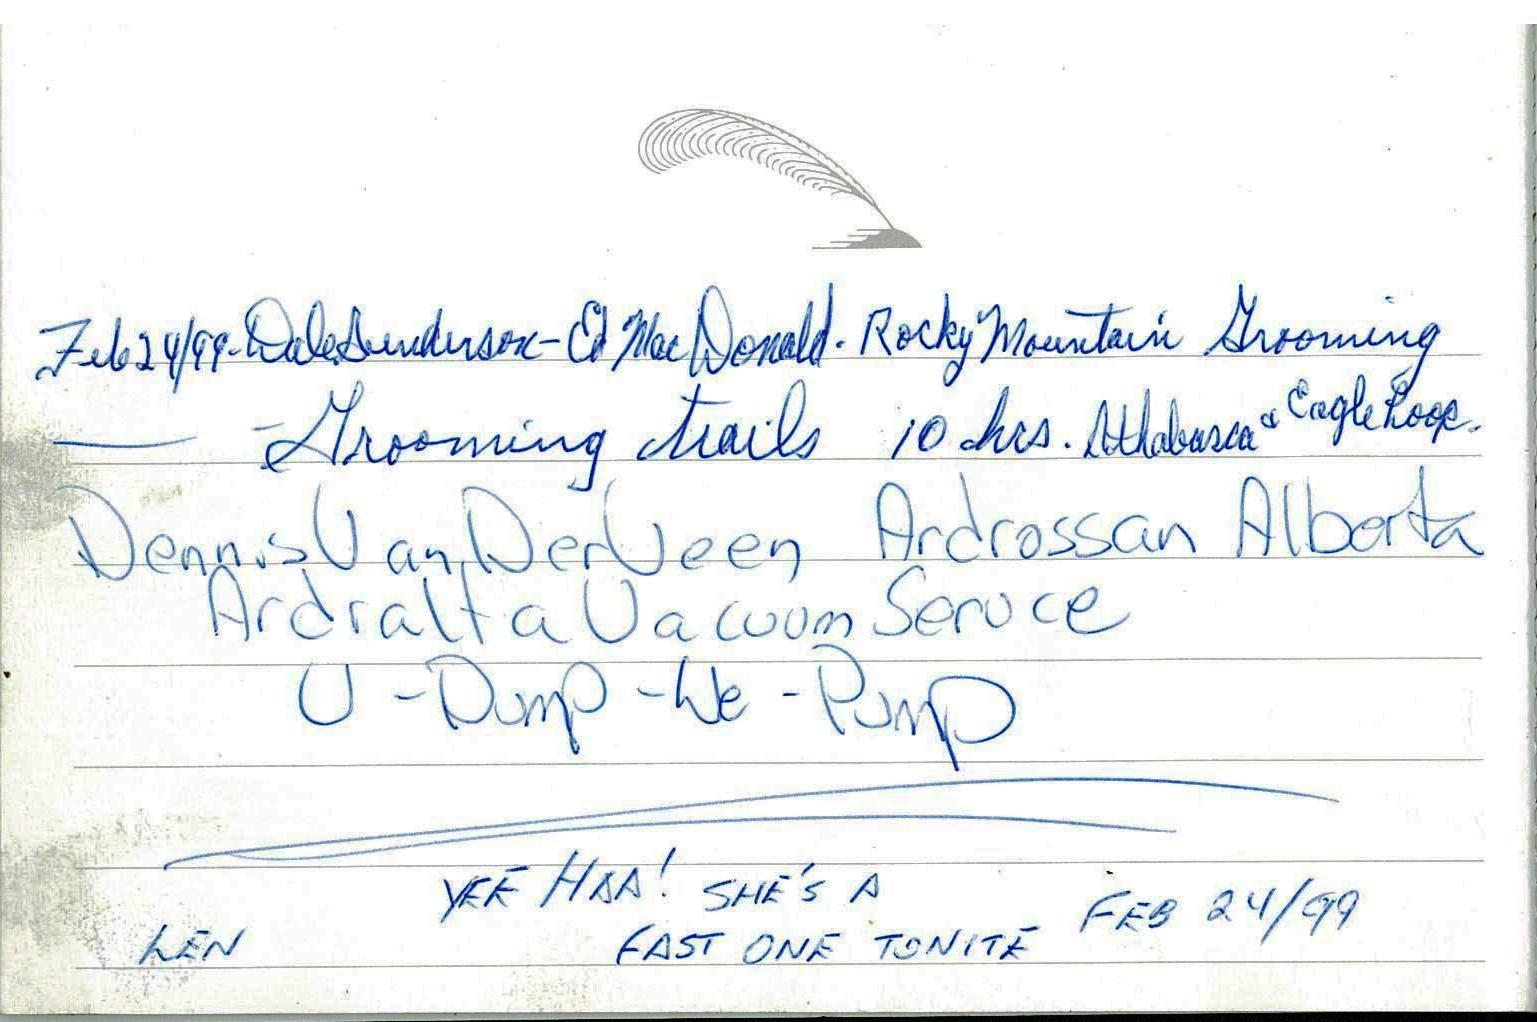 Feb 24/99 - Dale Gunderson - Ed MacDonald - Rocky Mountain Grooming
- Grooming trails 10 hrs. Athabasca & Eagle Loop.
Dennis VanDerVeen Ardrossan Alberta
Ardralta Vacuum Service
U - Dump - We - Pump
YEE HAA! SHE'S A FEB 24/99
LEN FAST ONE TONITE